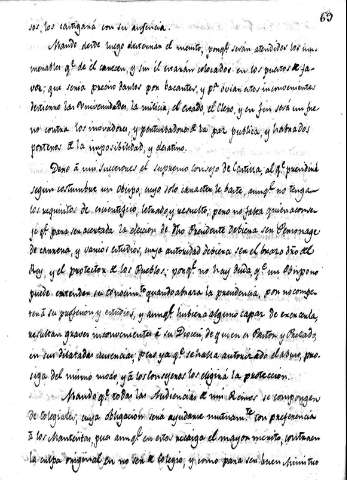 69
sos, los castigará con su ausencia.
Mando desde luego destierran el merito, porq.e serán atendidos los inu-
merables q.e de el carecen, y sin él estarán colocados en los puestos
que sería preciso darlos por bacantes, y p.a obiar estos inconvenientes
destierro las Universidades, la milicia, el estado, el Clero, y en fin será un fre
no contra los inovadores, y perturbadores de la paz publica, y habrados
porteros de la imposibilidad, y destino.
Dexo á mis succesores el supremo consejo de Castilla, al q.e presidirá
segun costumbre un obispo, cuyo solo caracter le baste, aunq.e no tenga
los requisitos de cientifico, letrado, y resuelto; pero no falta quien aconse-
je q.e para ser acertada la eleccion de d.ho Presidente debiera ser Personage
de carrera, y varios estudios, cuya autoridad debiera ser el brazo dro. del
Rey, y el protector de los Pueblos: porq.e no hay duda q.e un obispo no
puede extender su conocim.to quando abraza la presidencia, por no compe-
ter á su profesion y estudios, y aunq.e hubiera alguno capaz de exercerla,
resultan graves inconvenientes á su Diocesi, de quien es Pastor y Prelado,
en sus dilatadas ausencias; pero ya q.e se halla autorizado el abuso, pro-
siga del mismo modo, y á los consejeros les elegirá la proteccion.
Mando q.e todas las Audiencias de mis Reinos se compongan
de Colegiales, cuya obligacion será ayudarse mutuam.te con preferencia
á los Manteistas, que aunq.e en estos recaiga el mayor merito, contraen
la culpa original en no ser de Colegio, y como para ser buen Ministro